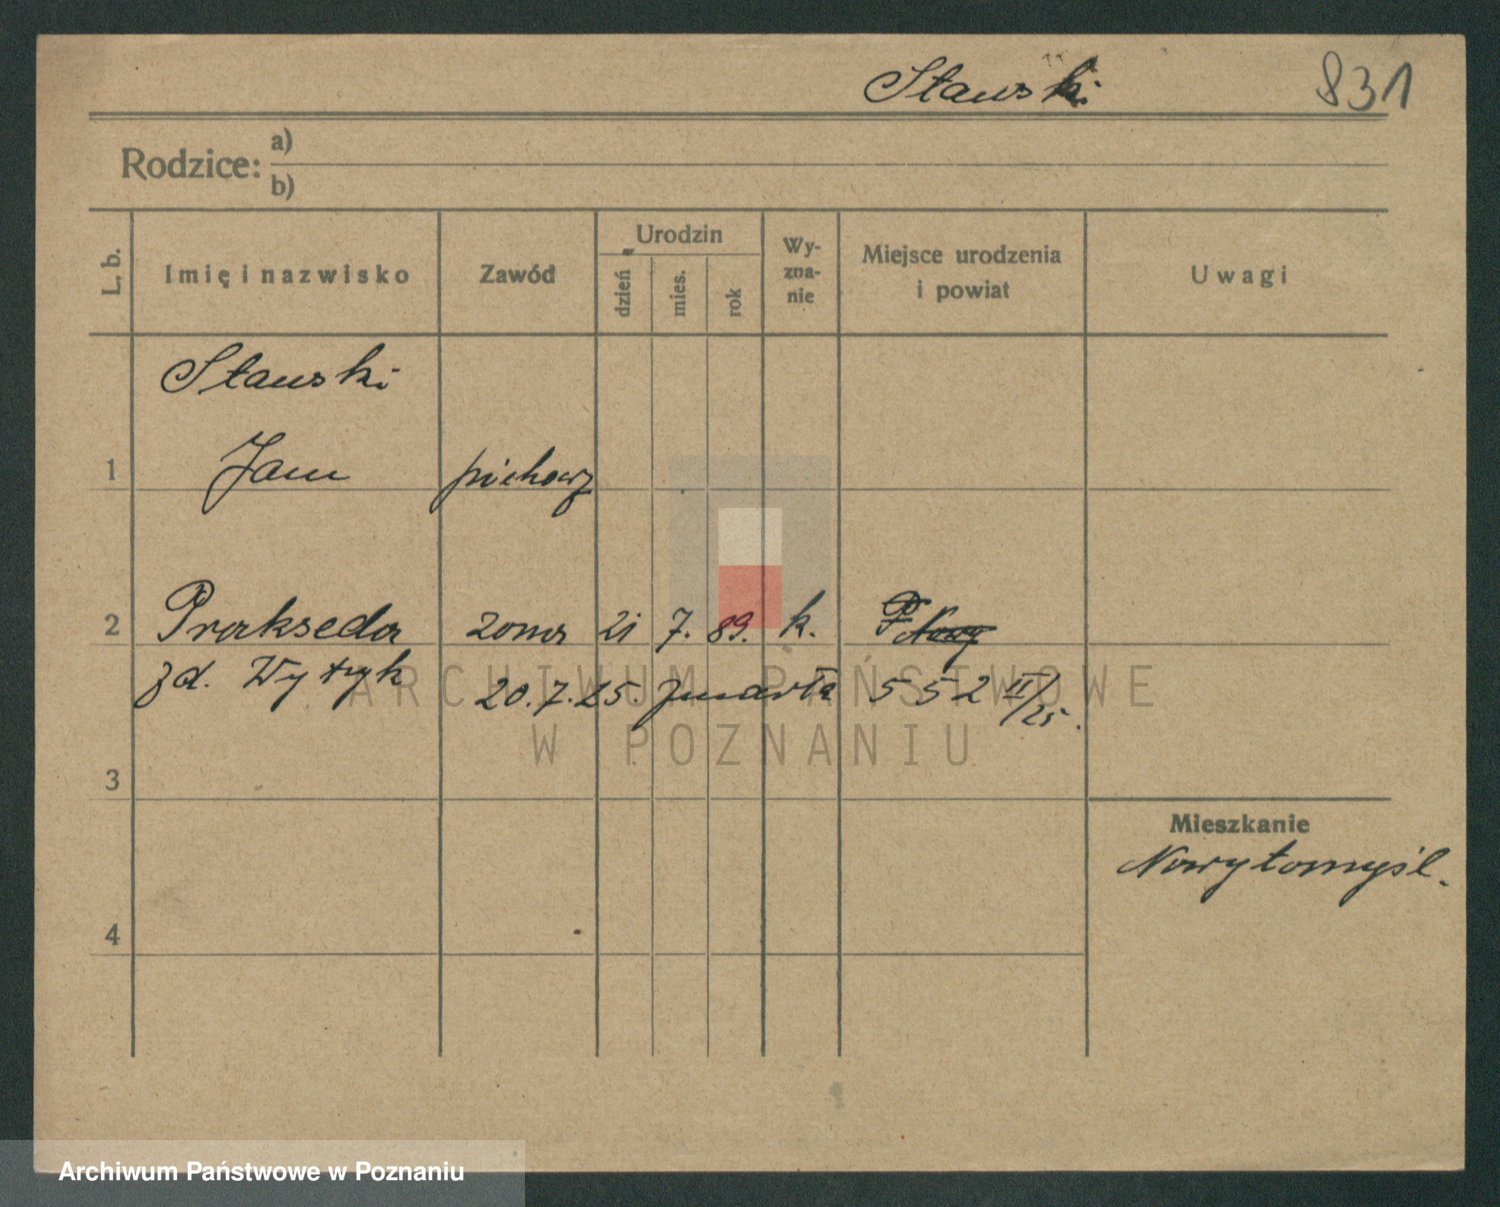 Stawski 831
Rodzice: a)
b)
L. b. Imię i nazwisko Zawód Urodzin dzień mies. rok Wy-zna-nie Miejsce urodzenia i powiat Uwagi
Stawski
1 Jan
2 Prakseda żona 21 7. 89. k.
zd. Wytyk 20.7.25. zmarła 552 II/25.
3
Mieszkanie
Nowytomyśl.
4
ARCHIWUM PAŃSTWOWE
W POZNANIU
Archiwum Państwowe w Poznaniu